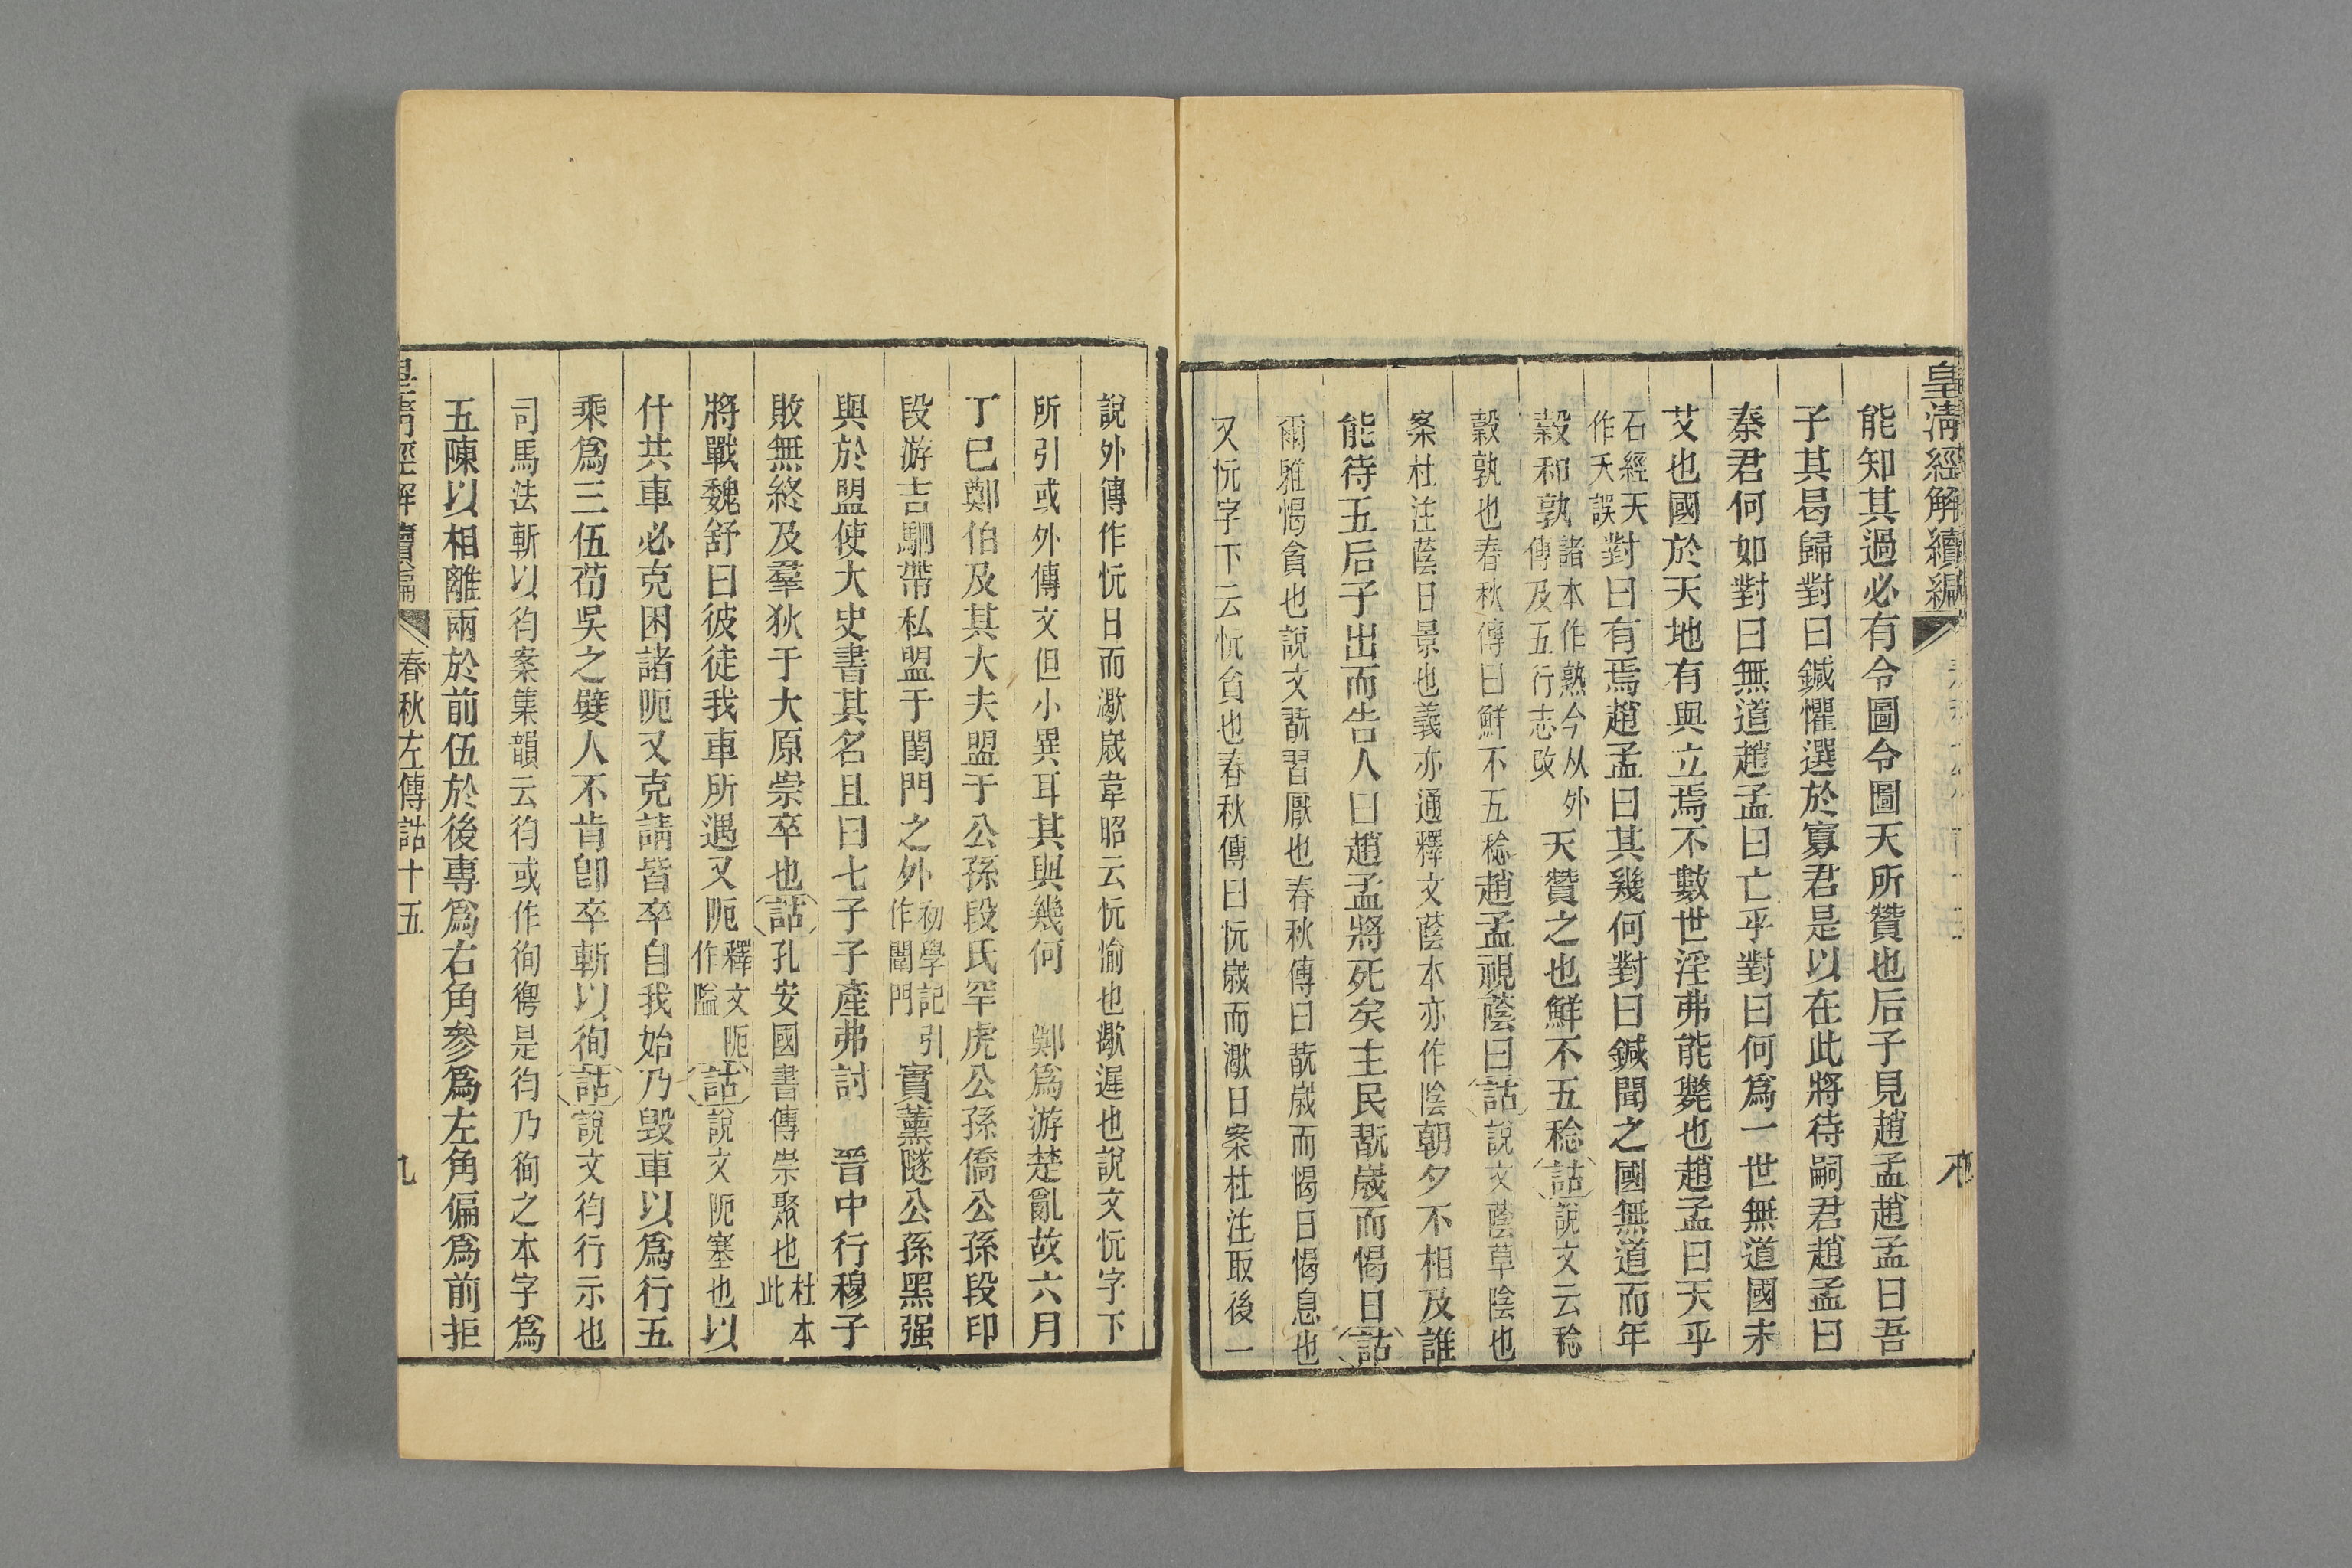 皇清經解續編
八
能知其過必有令圖令圖天所贊也后子見趙孟趙孟曰吾
子其曷歸對曰鍼懼選於寡君是以在此將待嗣君趙孟曰
秦君何如對曰無道趙孟曰亡乎對曰何爲一世無道國未
艾也國於天地有與立焉不數世淫弗能斃也趙孟曰天乎
石經天作夭誤對曰有焉趙孟曰其幾何對曰鍼聞之國無道而年
穀和孰諸本作熟今从外傳及五行志改天贊之也鮮不五稔詁說文云稔
穀孰也春秋傳曰鮮不五稔趙孟視蔭曰詁說文蔭草陰也
案杜注蔭日景也義亦通釋文蔭本亦作陰朝夕不相及誰
能待五后子出而告人曰趙孟將死矣主民翫嵗而愒日詁
爾雅愒貪也說文翫習厭也春秋傳曰翫嵗而愒日愒息也
又忨字下云忨貪也春秋傳曰忨嵗而潵日案杜注取後一
說外傳作忨日而潵嵗韋昭云忨愉也潵遲也說文忨字下
所引或外傳文但小異耳其與幾何　鄭爲游楚亂故六月
丁巳鄭伯及其大夫盟于公孫段氏罕虎公孫僑公孫段印
段游吉駟帶私盟于閨門之外初學記引作闈門實薰隧公孫黑强
與於盟使大史書其名且曰七子子產弗討　晉中行穆子
敗無終及羣狄于大原崇卒也詁孔安國書傳崇聚也杜本此
將戰魏舒曰彼徒我車所遇又阨釋文阨作隘詁說文阨塞也以
什共車必克困諸阨又克請皆卒自我始乃毀車以爲行五
乘爲三伍荀吳之嬖人不肯卽卒斬以徇詁說文㣘行示也
司馬法斬以㣘案集韻云㣘或作徇㣞是㣘乃徇之本字爲
五陳以相離兩於前伍於後專爲右角參爲左角偏爲前拒
皇清經解續編
春秋左傳詁十五
九